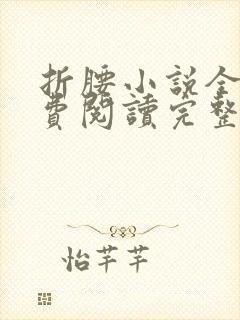 折腰小說全
費閱讀完整
怡芊芊